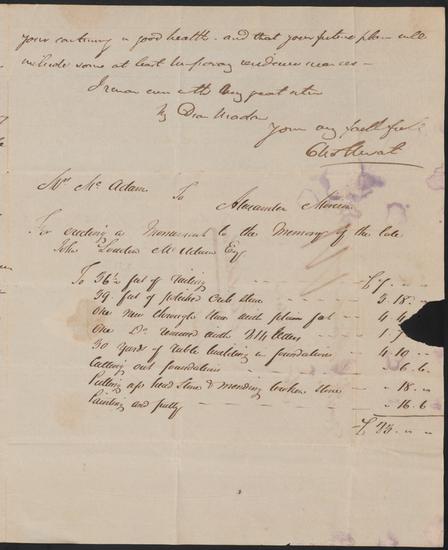 your continuing in good health - and that your future plan will
include some at least
I remain ever with very great
My Dear Madam
Your very faithful
Chas Stewart
Mrs Mc Adam To Alexander
For erecting a Monument to the Memory of the late
John Loudon McAdam Esq
To 36½ feet of railing - - £7 " "
39 feet of polished Curb Stone - - 3. 18. "
One new through Stone with - - 4. 4
One Do. renewed with 214 letters - - 1.
30 yards of ruble building in foundations - - 4. 10. "
Cutting out foundations - - 6. 6
Putting up head Stone & mending broken Stone - - " 18. "
Painting and putty - - " 16. 6
£23. " "